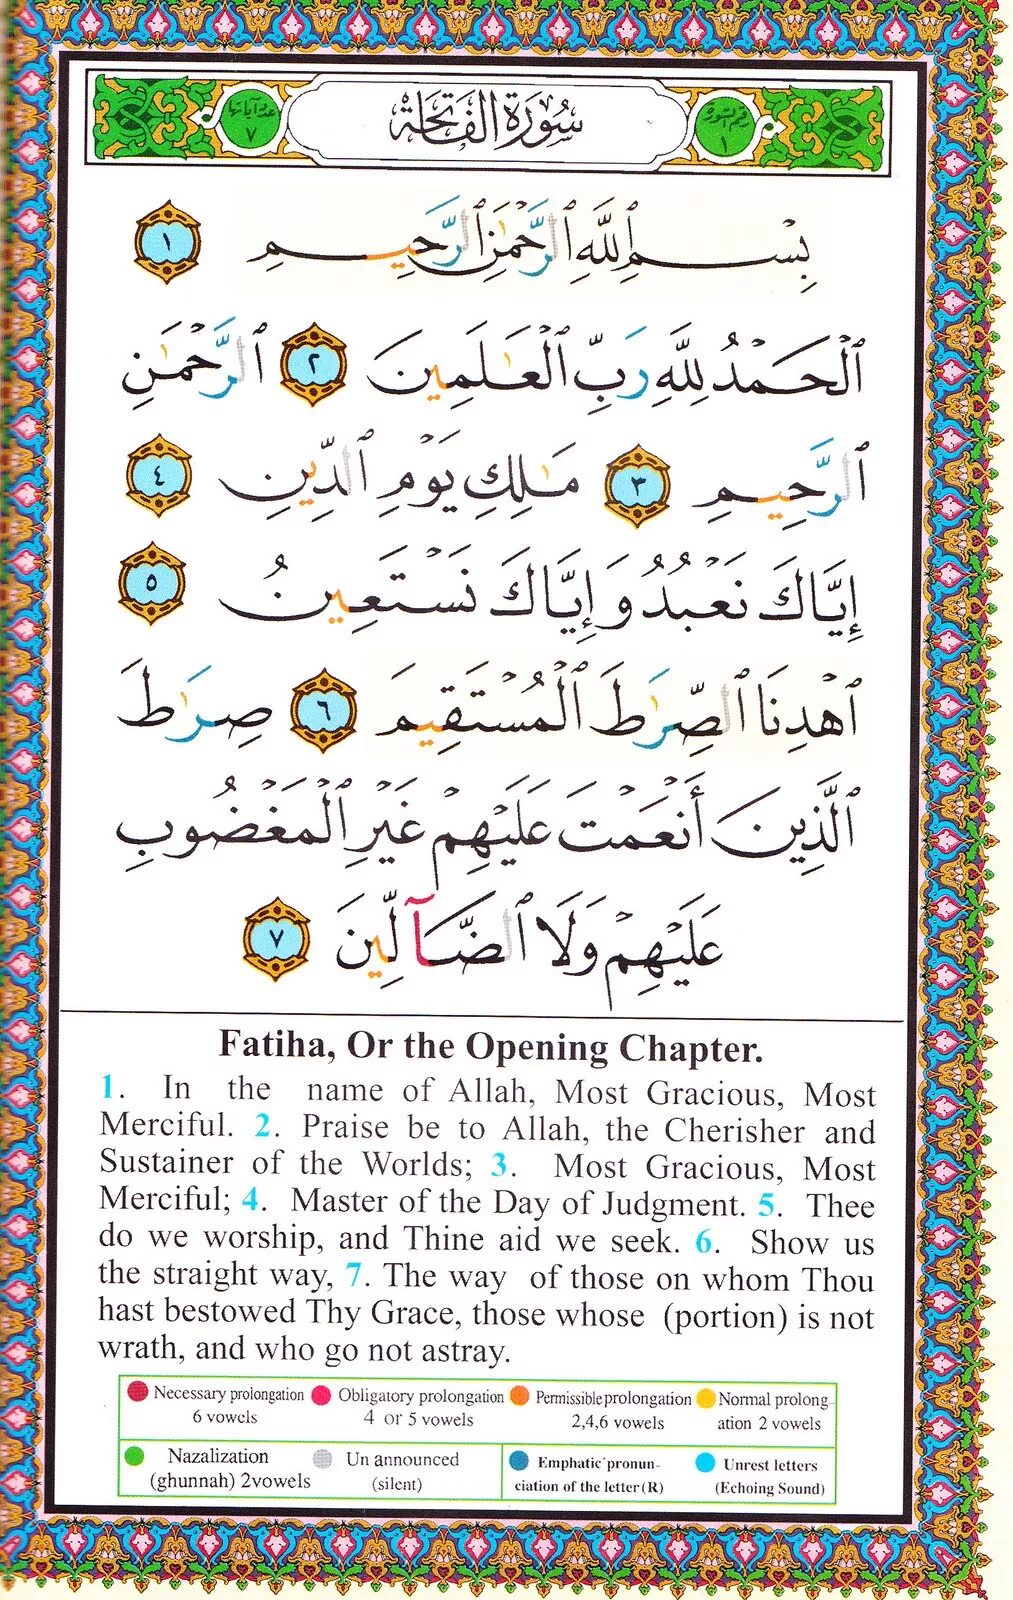 رقم السورة ١ سُورَةُ الفَاتِحَة عدد آياتها ٧
بِسْمِ ٱللَّهِ ٱلرَّحْمَٰنِ ٱلرَّحِيمِ ١
ٱلْحَمْدُ لِلَّهِ رَبِّ ٱلْعَٰلَمِينَ ٢ ٱلرَّحْمَٰنِ
ٱلرَّحِيمِ ٣ مَٰلِكِ يَوْمِ ٱلدِّينِ ٤
إِيَّاكَ نَعْبُدُ وَإِيَّاكَ نَسْتَعِينُ ٥
ٱهْدِنَا ٱلصِّرَٰطَ ٱلْمُسْتَقِيمَ ٦ صِرَٰطَ
ٱلَّذِينَ أَنْعَمْتَ عَلَيْهِمْ غَيْرِ ٱلْمَغْضُوبِ
عَلَيْهِمْ وَلَا ٱلضَّآلِّينَ ٧
Fatiha, Or the Opening Chapter.
1. In the name of Allah, Most Gracious, Most
Merciful. 2. Praise be to Allah, the Cherisher and
Sustainer of the Worlds; 3. Most Gracious, Most
Merciful; 4. Master of the Day of Judgment. 5. Thee
do we worship, and Thine aid we seek. 6. Show us
the straight way, 7. The way of those on whom Thou
hast bestowed Thy Grace, those whose (portion) is not
wrath, and who go not astray.
Necessary prolongation Obligatory prolongation Permissible prolongation Normal prolong-
6 vowels 4 or 5 vowels 2,4,6 vowels ation 2 vowels
Nazalization Un announced Emphatic pronun- Unrest letters
(ghunnah) 2vowels (silent) ciation of the letter (R) (Echoing Sound)